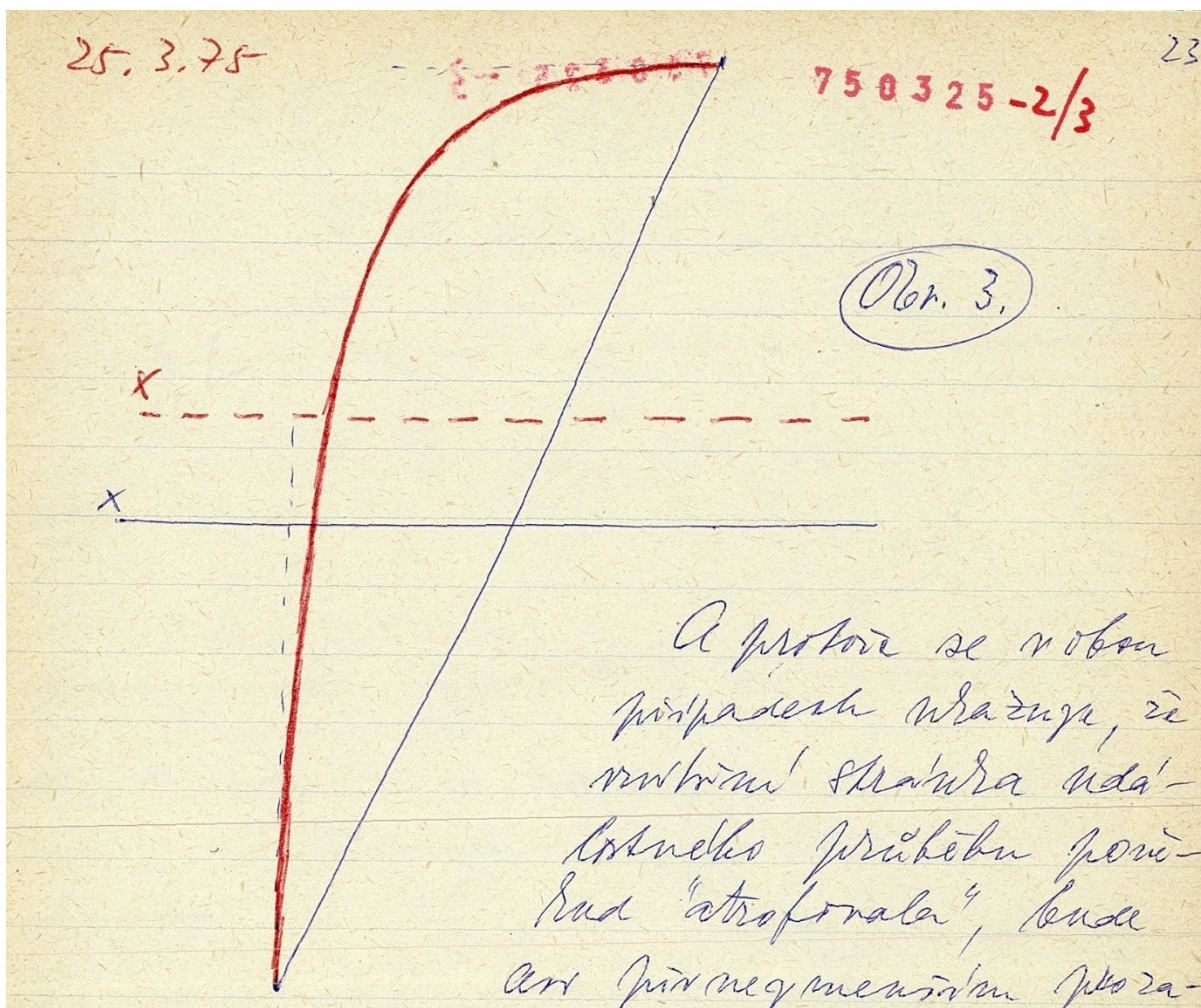 25. 3. 75
23
750325-2/3
Obr. 3.
x
x
A protože se v obou
případech ukazuje, že
vnitřní stránka udá-
lostného průběhu poně-
kud "atrofovala", bude
asi přinejmenším pro za-